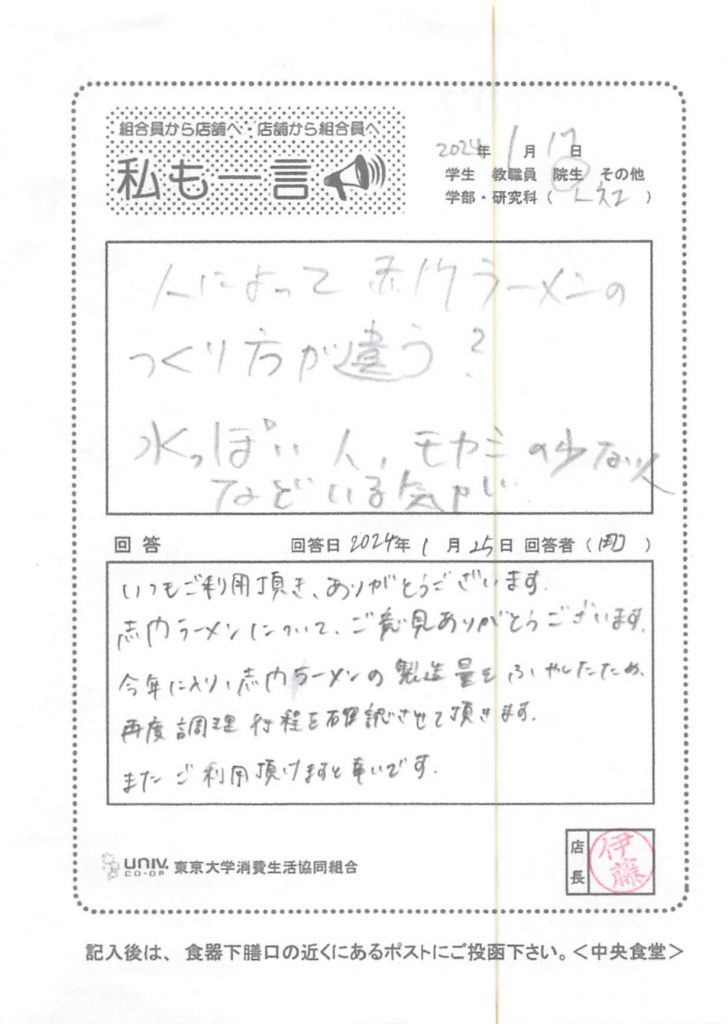 組合員から店舗へ・店舗から組合員へ
私も一言
2024年 1月 17日
学生 教職員 院生 その他
学部・研究科( )
人によって赤門ラーメンの
つくり方が違う?
水っぽい人,モヤシの少ない人
などいる気がする
回答 回答日 2024年 1月 25日 回答者( )
いつもご利用頂き、ありがとうございます.
赤門ラーメンについて、ご意見ありがとうございます.
今年に入り、赤門ラーメンの製造量をふやしたため、
再度調理行程を確認させて頂きます.
またご利用頂けますと幸いです.
UNIV. CO-OP 東京大学消費生活協同組合
店長 伊藤
記入後は、食器下膳口の近くにあるポストにご投函下さい。<中央食堂>